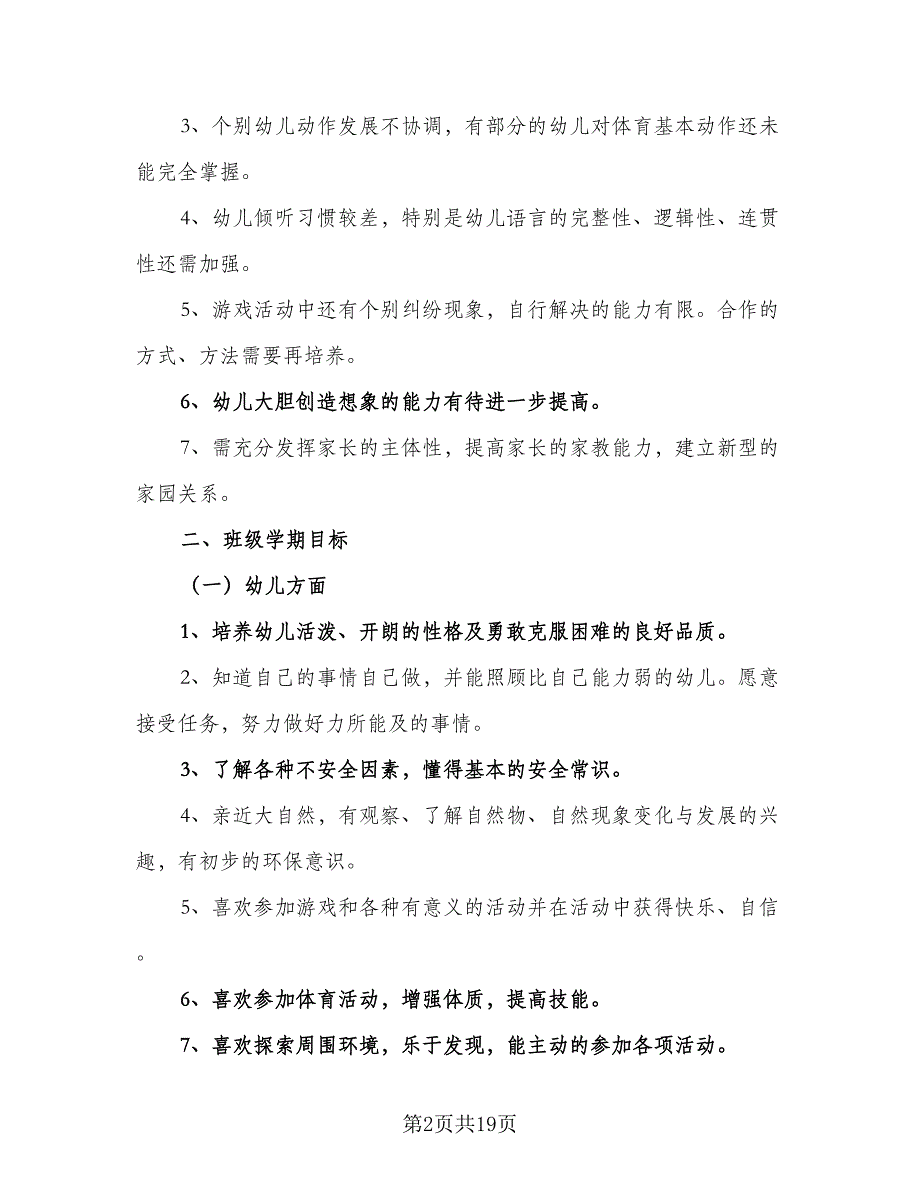 3、个别幼儿动作发展不协调，有部分的幼儿对体育基本动作还未
能完全掌握。
4、幼儿倾听习惯较差，特别是幼儿语言的完整性、逻辑性、连贯
性还需加强。
5、游戏活动中还有个别纠纷现象，自行解决的能力有限。合作的
方式、方法需要再培养。
6、幼儿大胆创造想象的能力有待进一步提高。
7、需充分发挥家长的主体性，提高家长的家教能力，建立新型的
家园关系。
二、班级学期目标
（一）幼儿方面
1、培养幼儿活泼、开朗的性格及勇敢克服困难的良好品质。
2、知道自己的事情自己做，并能照顾比自己能力弱的幼儿。愿意
接受任务，努力做好力所能及的事情。
3、了解各种不安全因素，懂得基本的安全常识。
4、亲近大自然，有观察、了解自然物、自然现象变化与发展的兴
趣，有初步的环保意识。
5、喜欢参加游戏和各种有意义的活动并在活动中获得快乐、自信
。
6、喜欢参加体育活动，增强体质，提高技能。
7、喜欢探索周围环境，乐于发现，能主动的参加各项活动。
第2页共19页